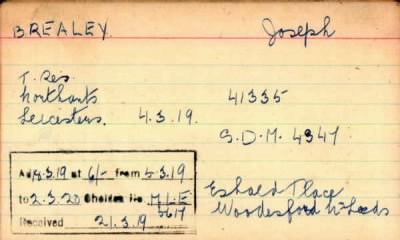 BREALEY. Joseph
T. Res.
Northants 41335
Leicesters. 4.3.19.
S.D.M. 4347
Awd 4.3.19 at 6/- from 5.3.19
to 2.3.20 Chelsea No. M/L/E
5617
Received 21.3.19
Place
Woodesford Nr Leeds